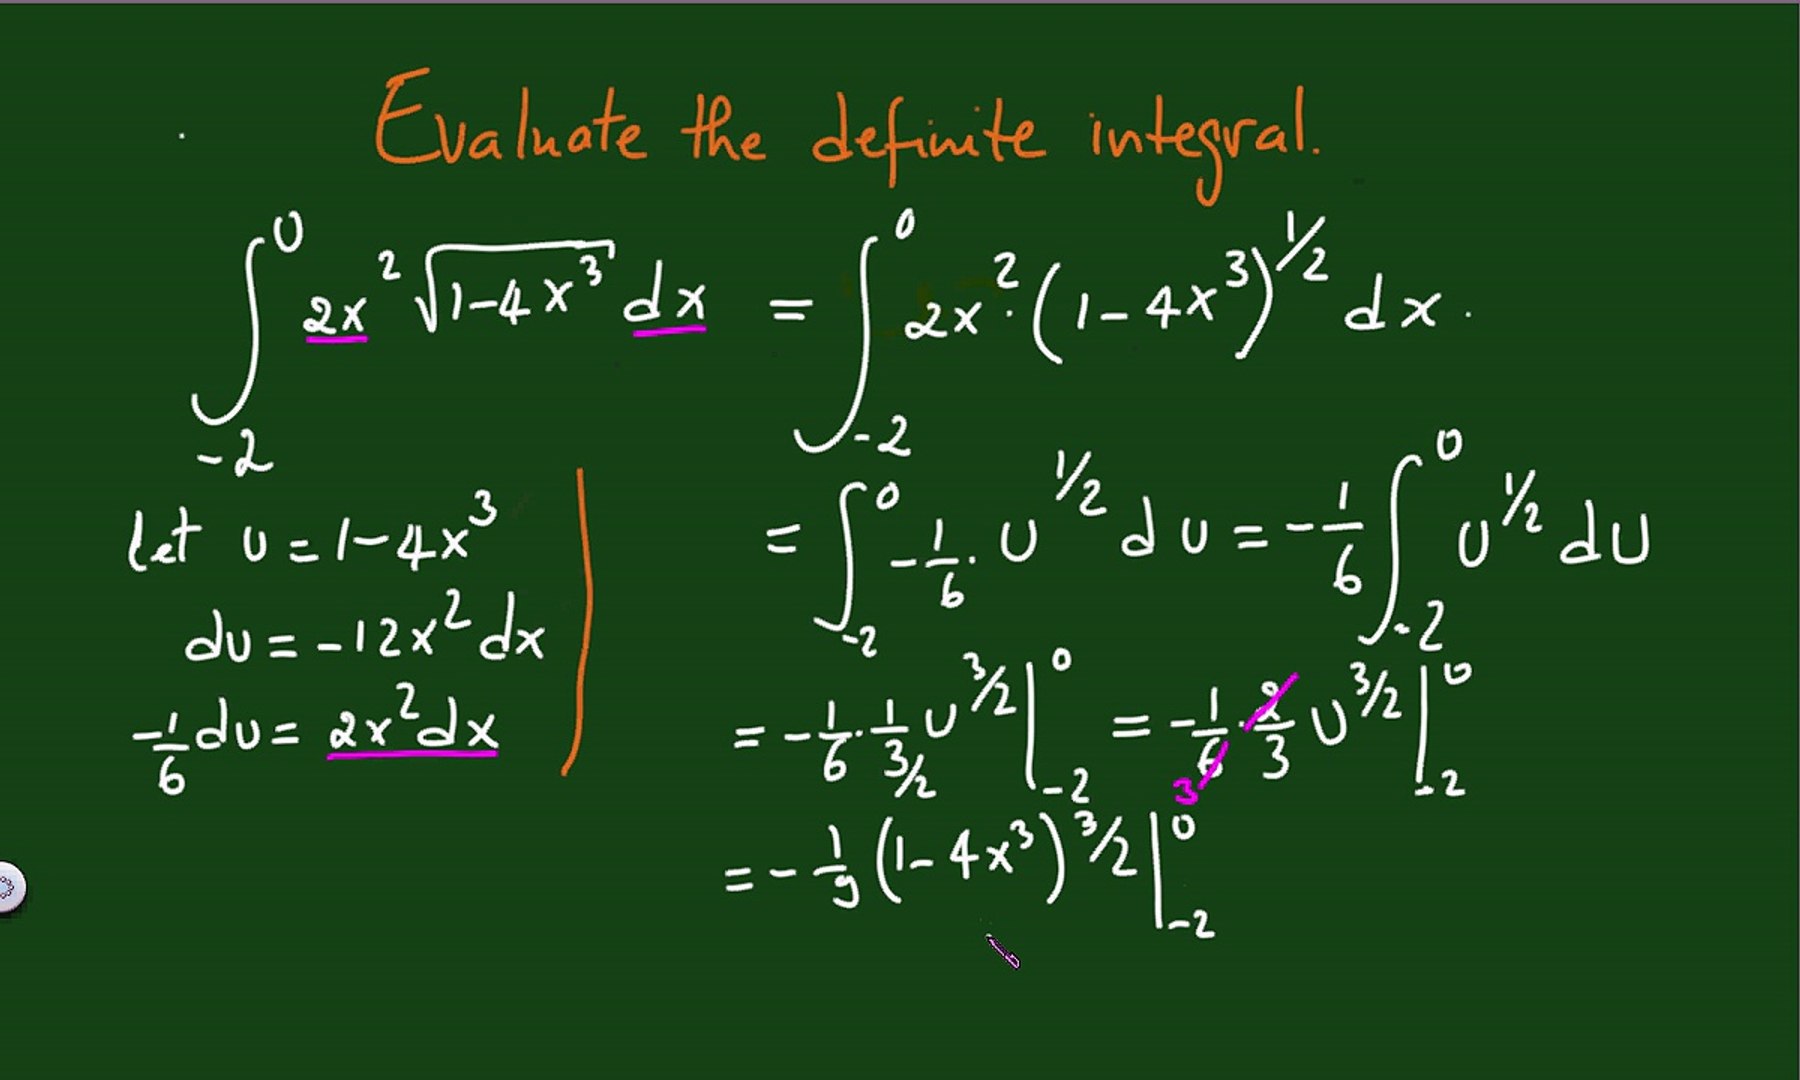 Evaluate the definite integral.
∫₋₂⁰ 2x² √(1-4x³) dx = ∫₋₂⁰ 2x² · (1-4x³)^(1/2) dx.
let u = 1-4x³
du = -12x² dx
-1/6 du = 2x² dx
= ∫₋₂⁰ -1/6 · U^(1/2) du = -1/6 ∫₋₂⁰ U^(1/2) dU
= -1/6 · 1/(3/2) U^(3/2) |₋₂⁰ = -1/6 · 2/3 U^(3/2) |₋₂⁰
3
= -1/9 (1-4x³)^(3/2) |₋₂⁰